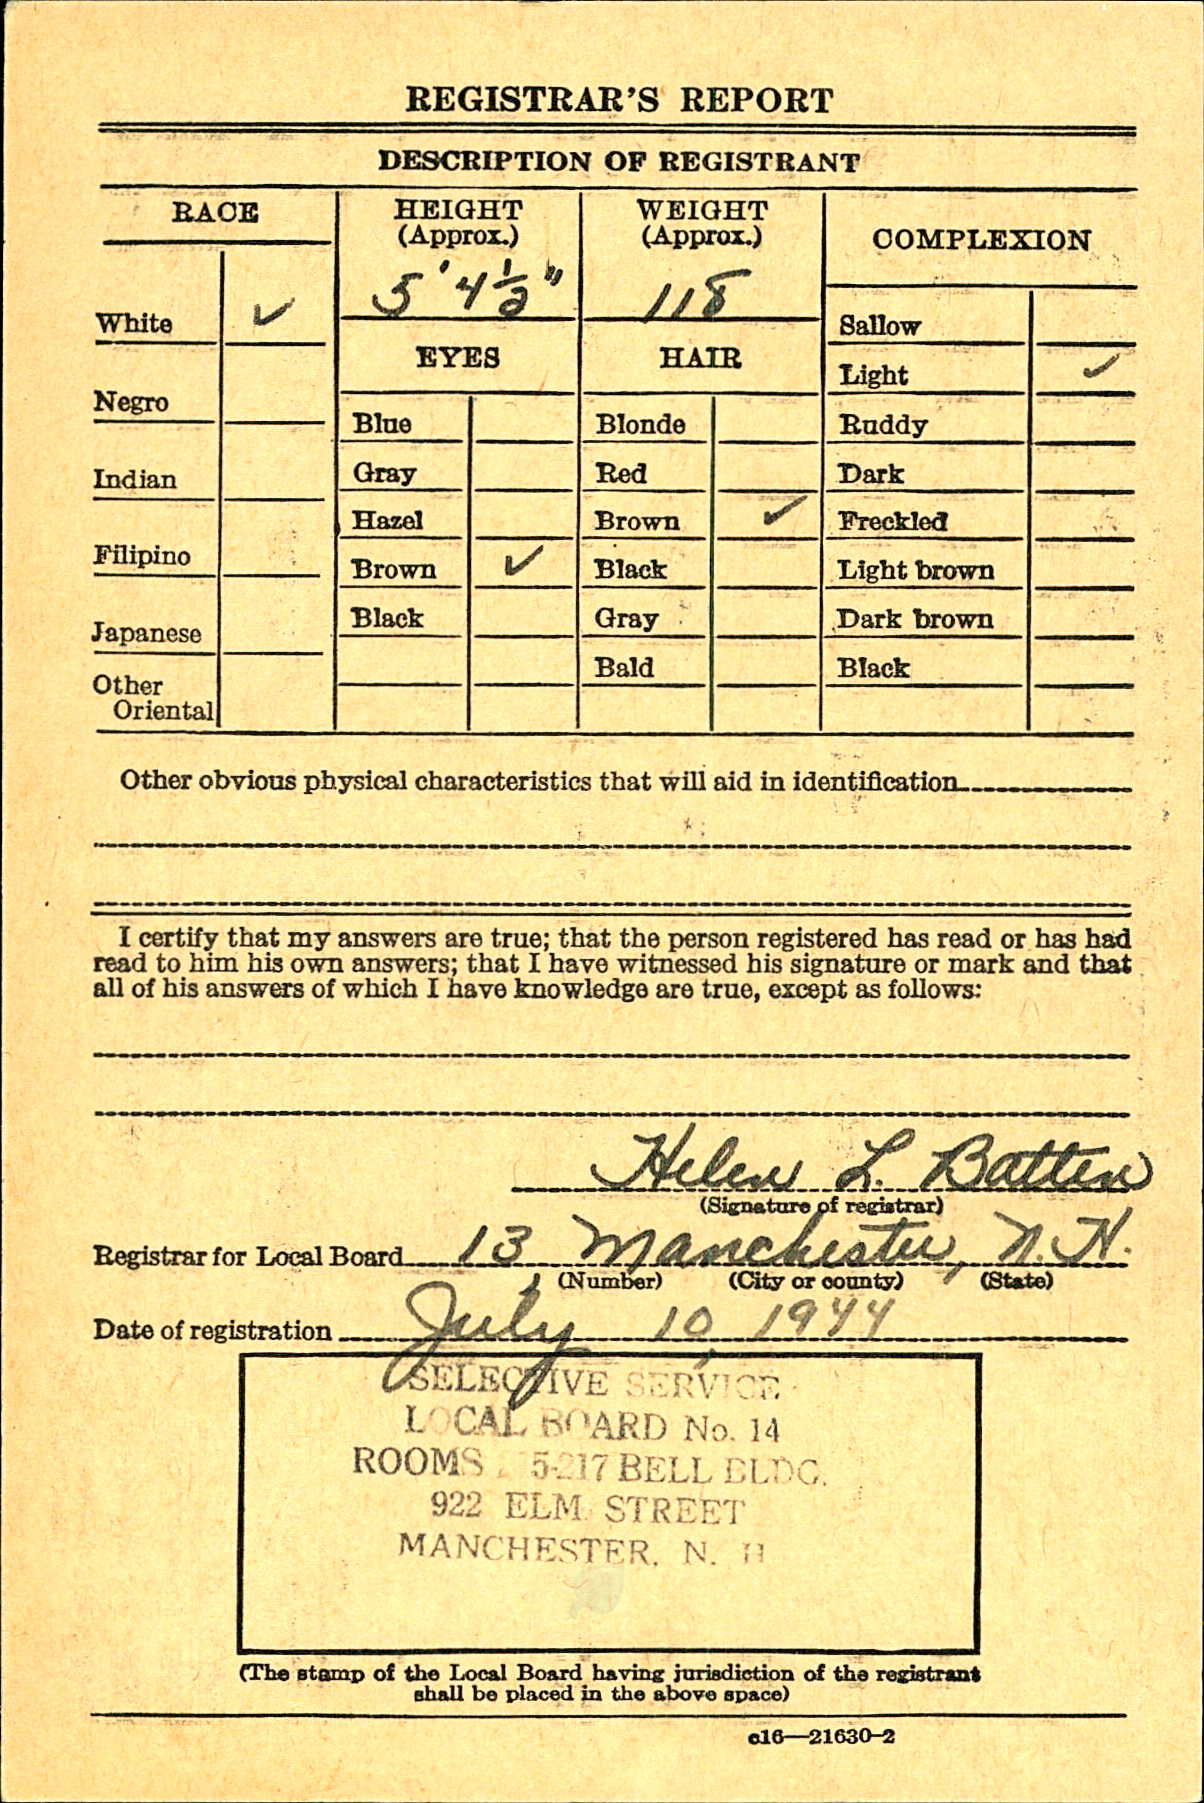 REGISTRAR'S REPORT
DESCRIPTION OF REGISTRANT
RACE
White ✓
Negro
Indian
Filipino
Japanese
Other
Oriental
HEIGHT
(Approx.)
5' 4 1/2"
WEIGHT
(Approx.)
118
EYES
Blue
Gray
Hazel
Brown ✓
Black
HAIR
Blonde
Red
Brown ✓
Black
Gray
Bald
COMPLEXION
Sallow
Light ✓
Ruddy
Dark
Freckled
Light brown
Dark brown
Black
Other obvious physical characteristics that will aid in identification
I certify that my answers are true; that the person registered has read or has had
read to him his own answers; that I have witnessed his signature or mark and that
all of his answers of which I have knowledge are true, except as follows:
Helen L. Batten
(Signature of registrar)
Registrar for Local Board 13 Manchester, N.H.
(Number) (City or county) (State)
Date of registration July 10, 1944
SELECTIVE SERVICE
LOCAL BOARD No. 14
ROOMS 5-217 BELL BLDG.
922 ELM STREET
MANCHESTER, N. H
(The stamp of the Local Board having jurisdiction of the registrant
shall be placed in the above space)
c16—21630-2